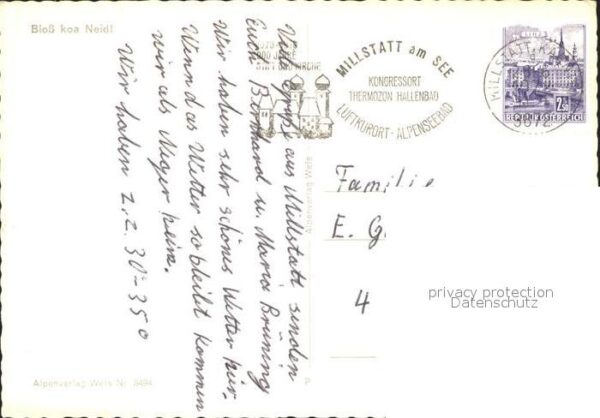 Bloß koa Neid!
Viele Grüße aus Millstatt senden
Euch Bernhard u. Maria Brüning
Wir haben sehr schönes Wetter hier.
Wenn das Wetter so bleibt kommen
wir als Neger heim.
Wir haben z.Z. 30°-35°
MILLSTATT am SEE
KONGRESSORT
THERMOZON HALLENBAD
LUFTKURORT - ALPENSEEBAD
LINZ
2.50
REPUBLIK ÖSTERREICH
Familie
E. G.
4
privacy protection
Datenschutz
Alpenverlag Wels
Alpenverlag Wels Nr. 8494